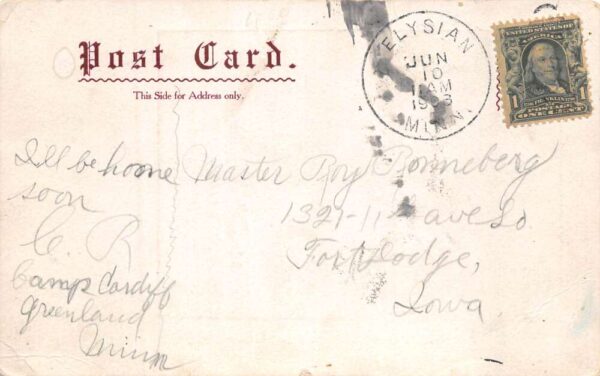 Post Card.
This Side for Address only.
ELYSIAN
JUN
10
AM
MINN.
UNITED STATES OF
AMERICA
FRANKLIN
1 1
POSTAGE
ONE CENT
I'll be home
soon
C. R
Camp Cardiff
Greenland
Minn
Master Roy Ronneberg
1321-11 ave So
Fort Dodge,
Iowa